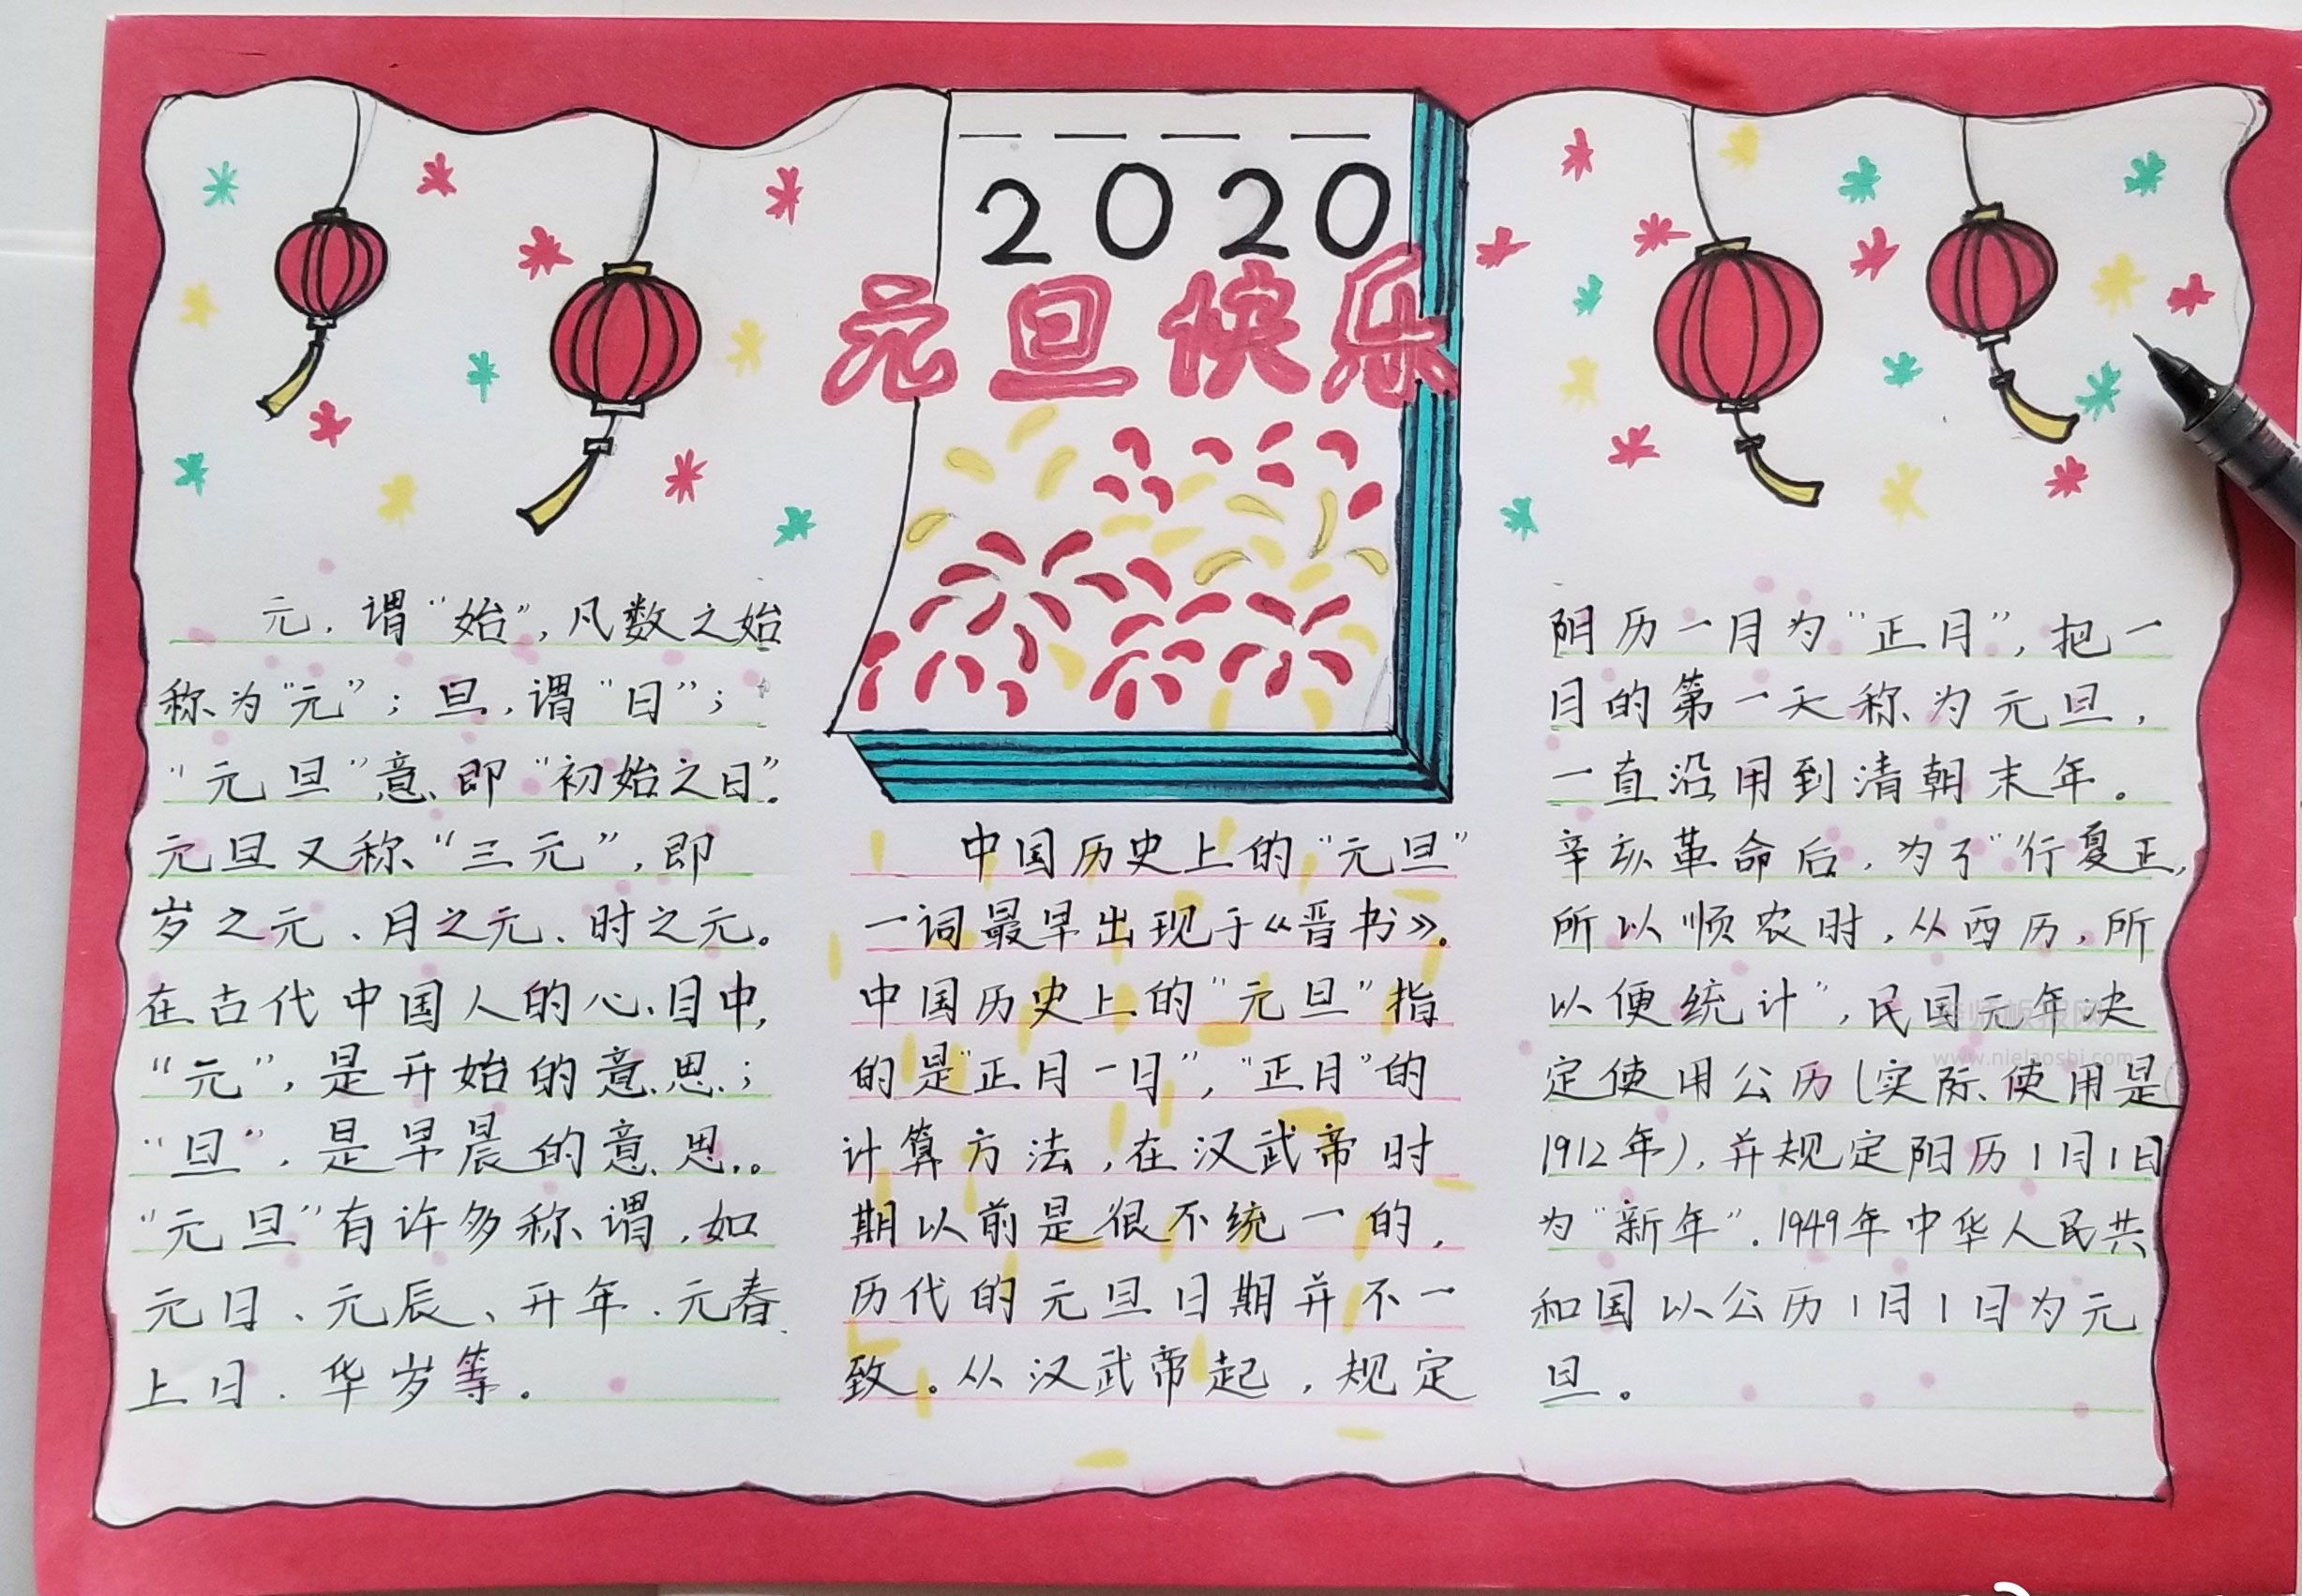 2020
元旦快乐
元，谓“始”，凡数之始
称为“元”；旦，谓“日”；
“元旦”意即“初始之日”。
元旦又称“三元”，即
岁之元、月之元、时之元。
在古代中国人的心目中，
“元”，是开始的意思；
“旦”，是早晨的意思。
“元旦”有许多称谓，如
元日、元辰、开年、元春、
上日、华岁等。
中国历史上的“元旦”
一词最早出现于《晋书》。
中国历史上的“元旦”指
的是“正月一日”，“正月”的
计算方法，在汉武帝时
期以前是很不统一的，
历代的元旦日期并不一
致。从汉武帝起，规定
阴历一月为“正月”，把一
月的第一天称为元旦，
一直沿用到清朝末年。
辛亥革命后，为了“行夏正，
所以顺农时，从西历，所
以便统计”，民国元年决
定使用公历（实际使用是
1912年），并规定阳历1月1日
为“新年”．1949年中华人民共
和国以公历1月1日为元
旦。
www.nielaoshi.com